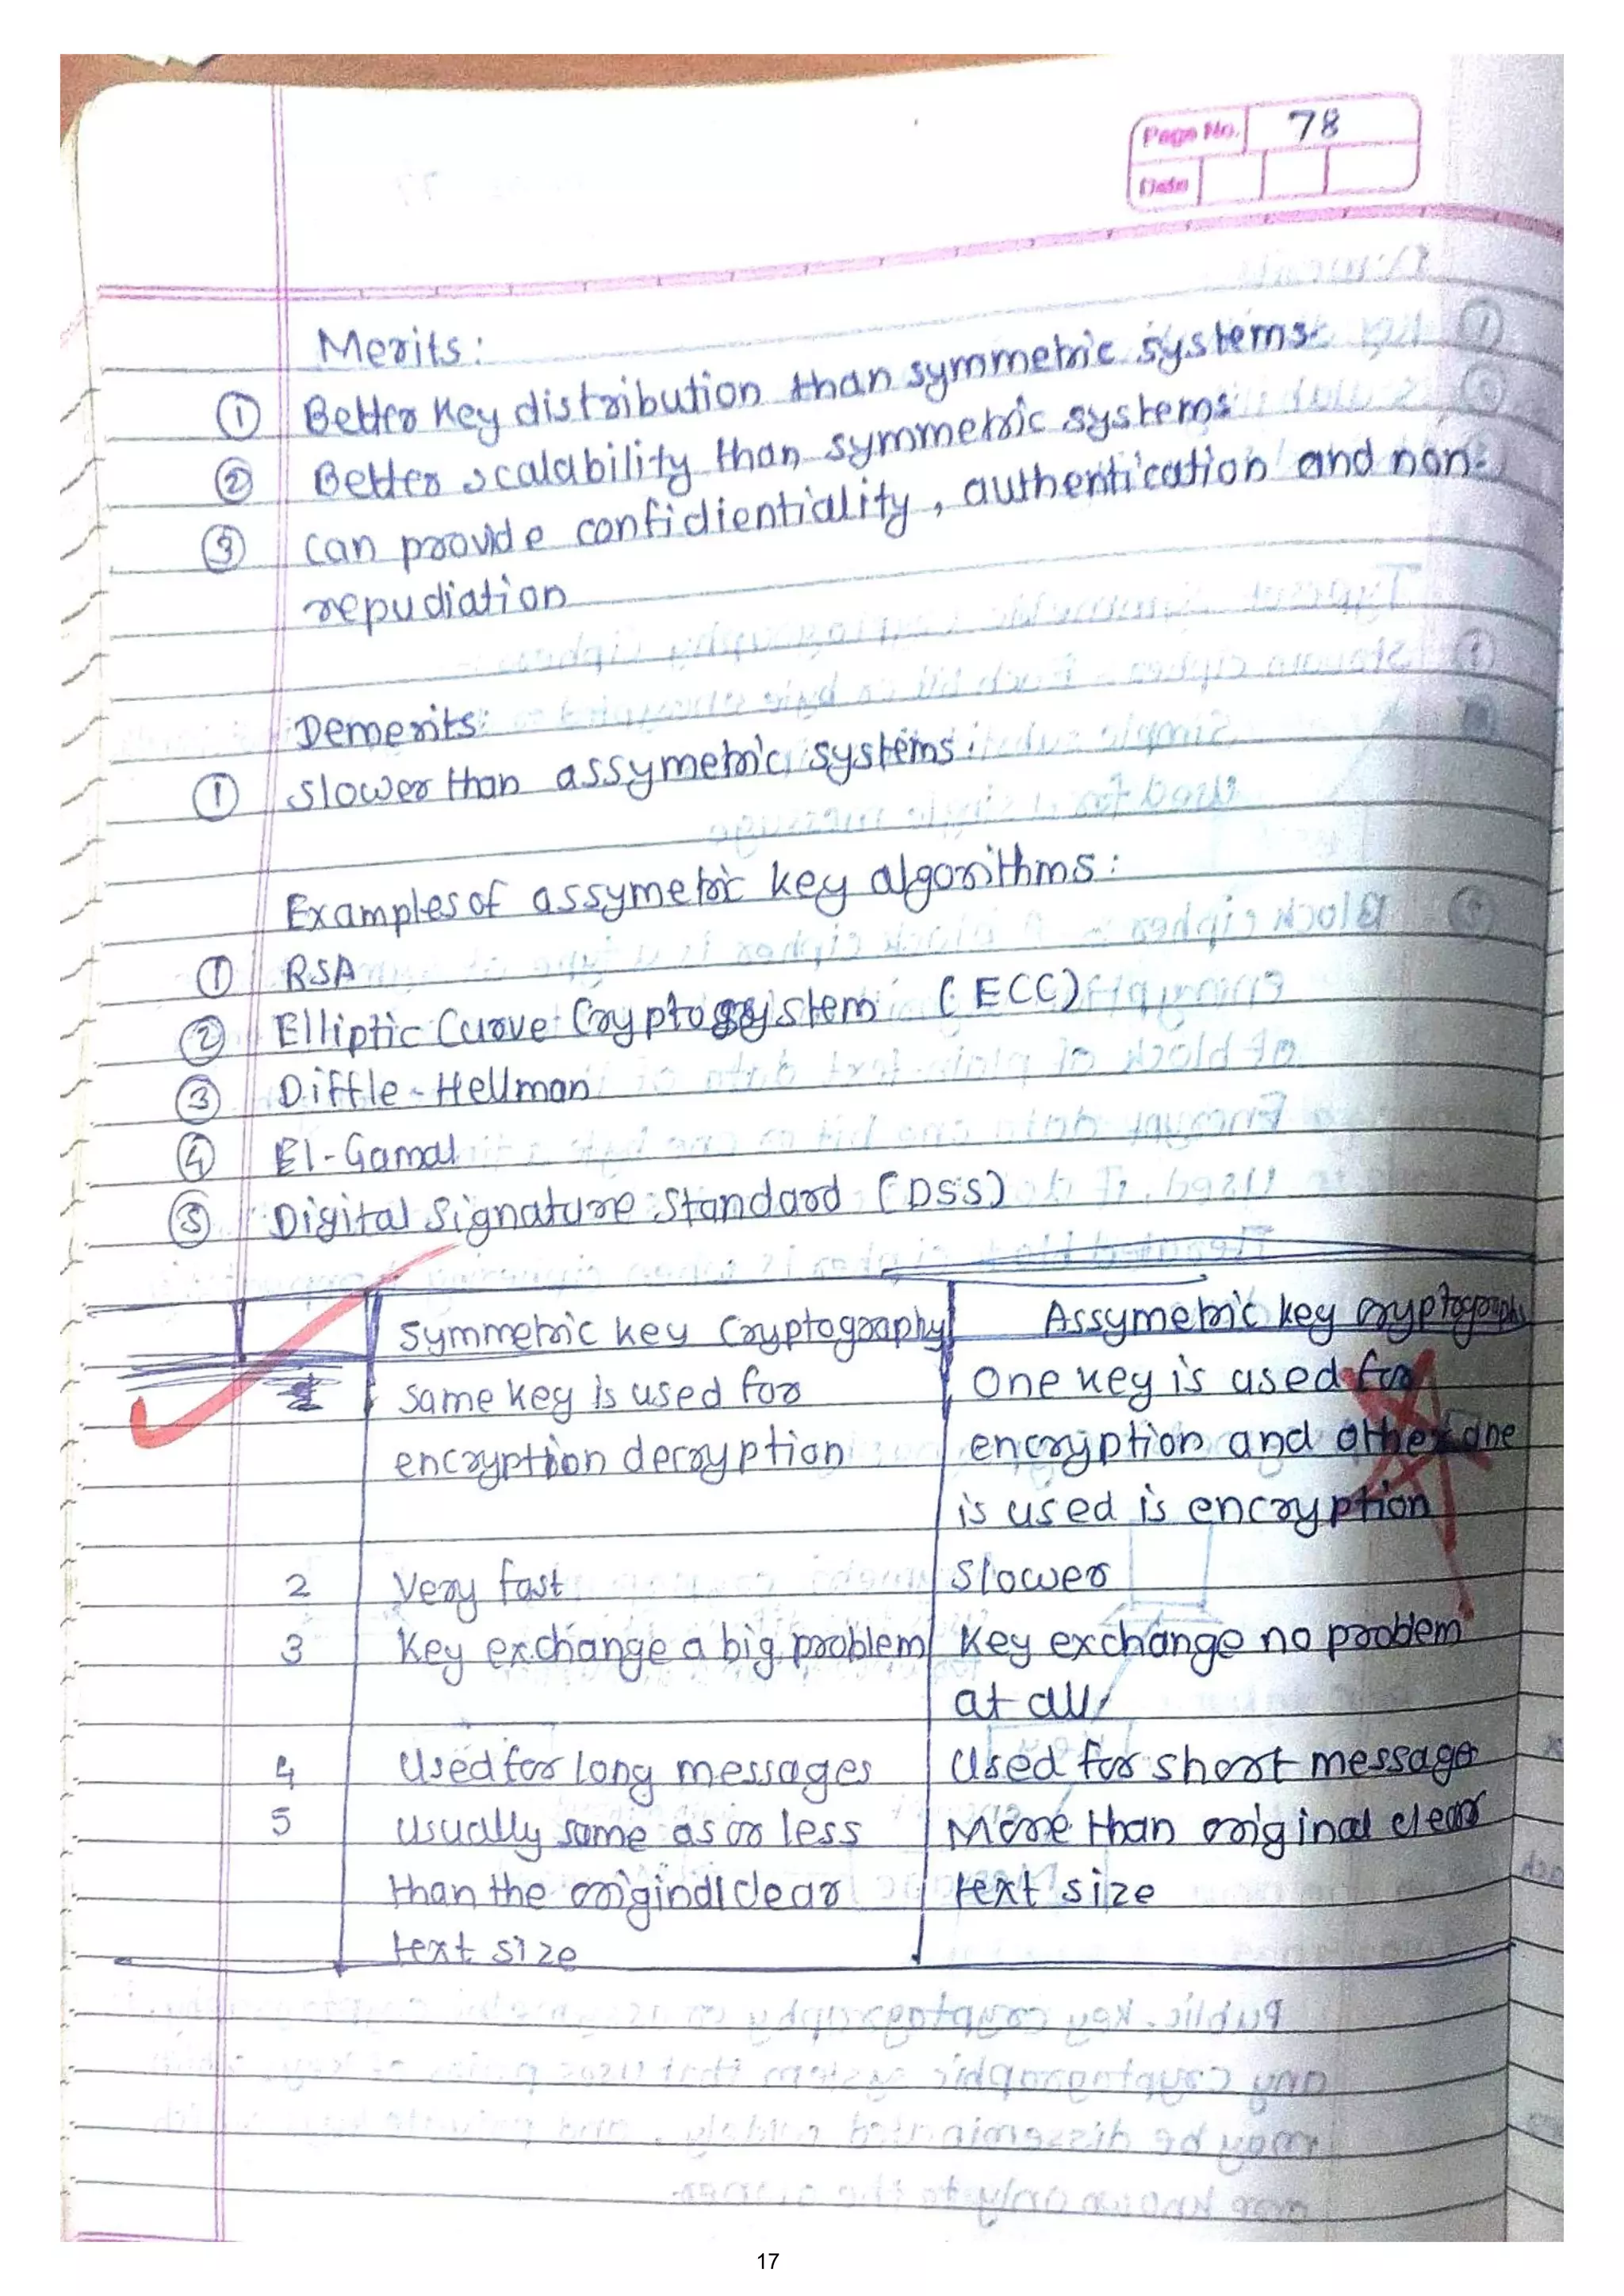 Page No. 78
Date
Merits:
① Better Key distribution than symmetric systems.
② Better scalability than symmetric systems
③ can provide confidientiality, authentication and non-
repudiation
Demerits:
① slower than assymetric systems.
Examples of assymetric key algorithms:
① RSA
② Elliptic Curve Cryptosystem (ECC)
③ Diffle-Hellman
④ El-Gamal
⑤ Digital Signature Standard (DSS)
Symmetric key Cryptography Assymetric key cryptography
1 same key is used for One key is used for
encryption decryption encryption and other one
is used is encryption
2 Very fast Slower
3 Key exchange a big problem Key exchange no problem
at all
4 Used for long messages Used for short message
5 usually same as or less More than original clear
than the original clear text size
text size
17